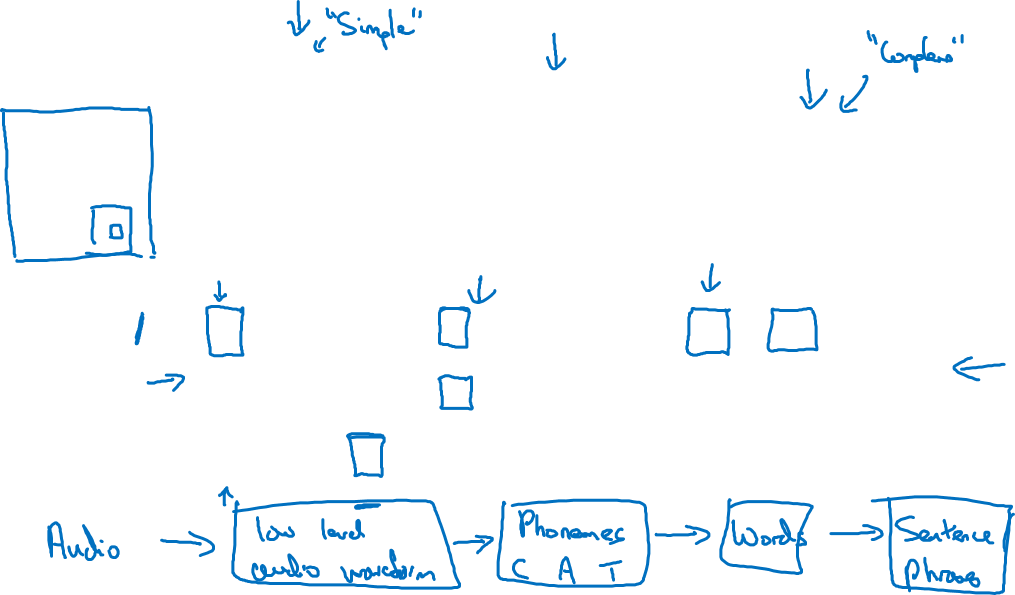 "Simple"
"Complex"
Audio
low level
audio waveform
Phonemes
C A T
Words
Sentence
Phrase